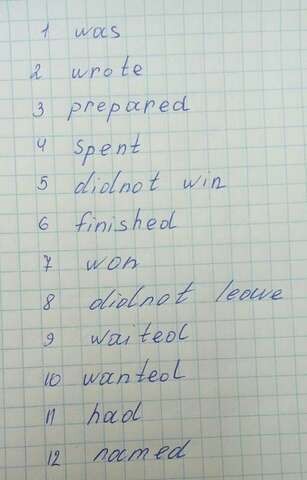 1 was
2 wrote
3 prepared
4 spent
5 didnot win
6 finished
7 won
8 didnot leave
9 waited
10 wanted
11 had
12 named